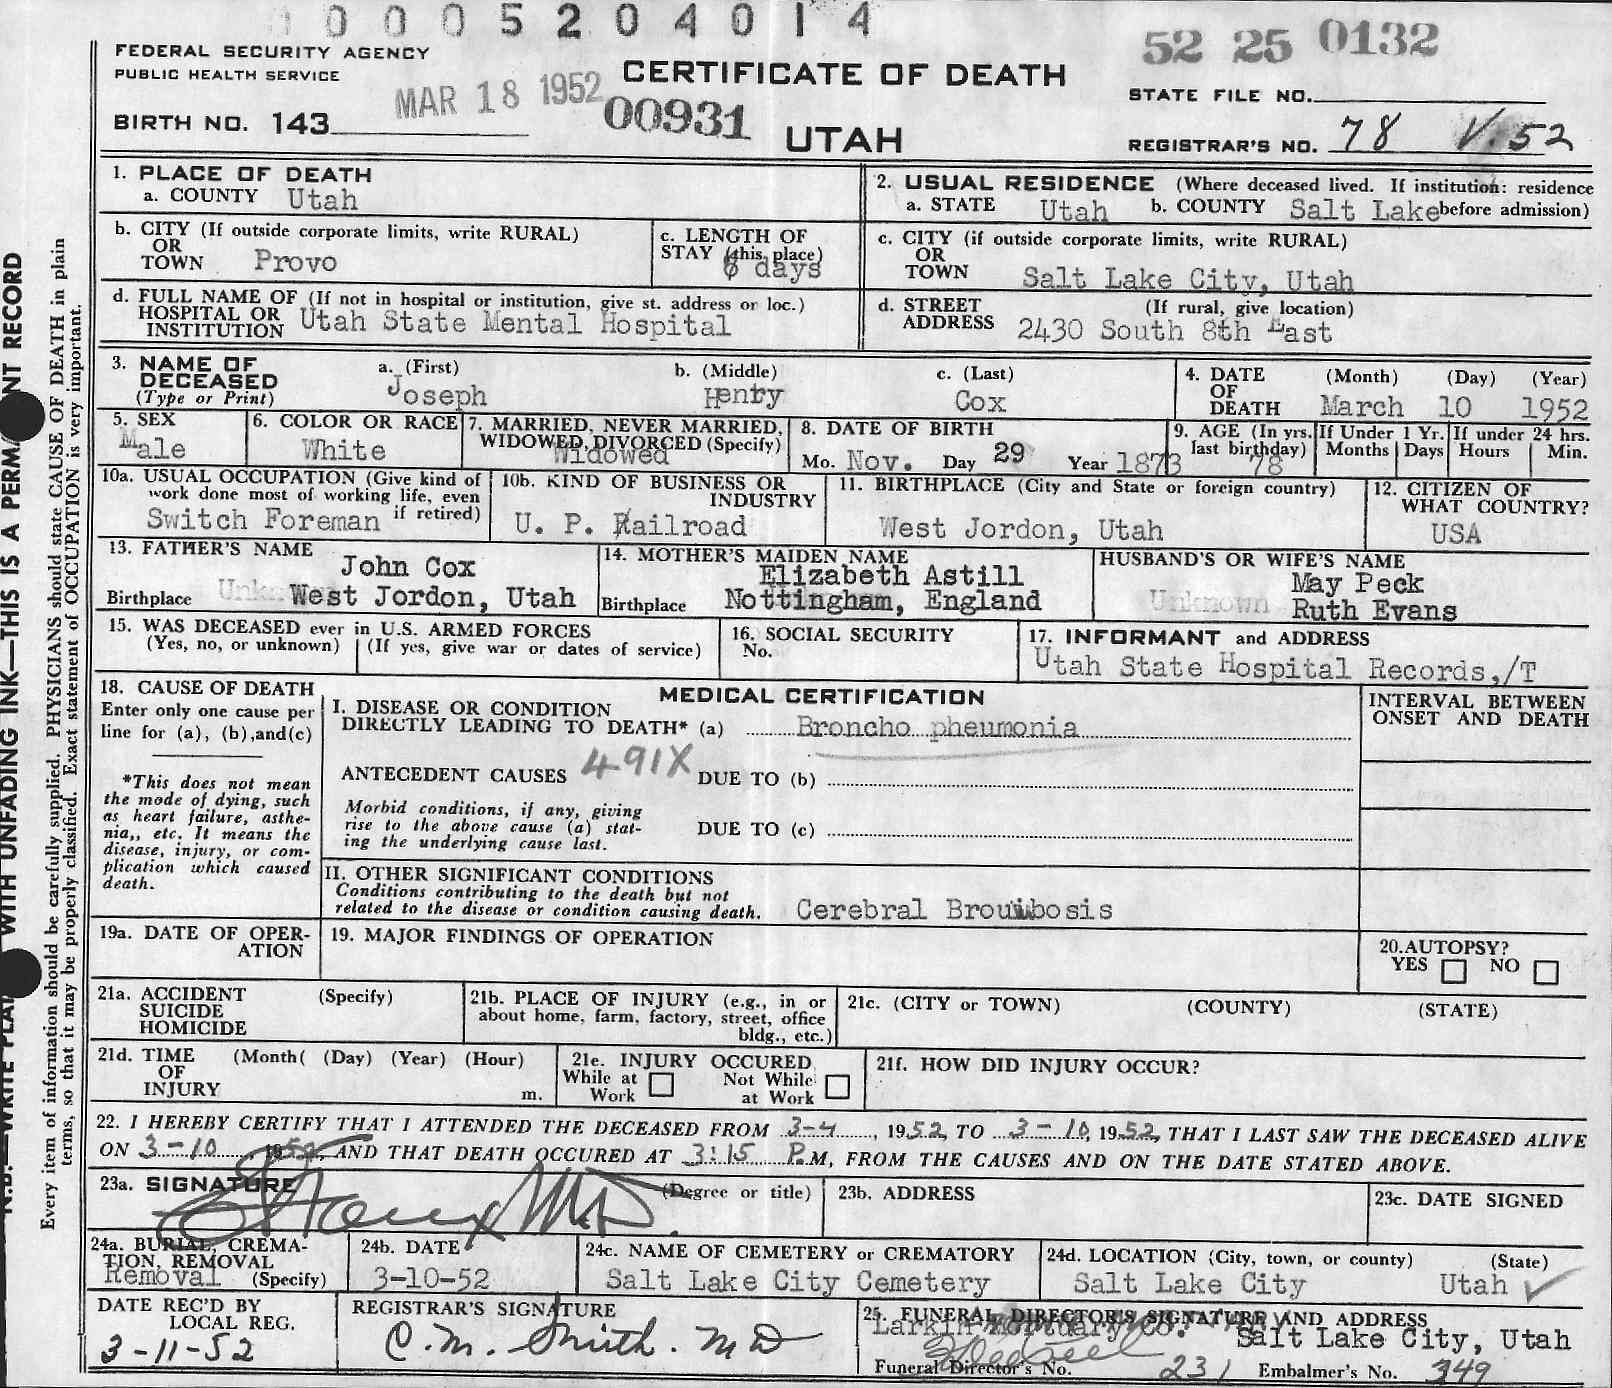 0 0 0 5 2 0 4 0 1 4
52 25 0132
FEDERAL SECURITY AGENCY
PUBLIC HEALTH SERVICE
MAR 18 1952
CERTIFICATE OF DEATH
STATE FILE NO.
BIRTH NO. 143
00931
UTAH
REGISTRAR'S NO. 78 V.52
1. PLACE OF DEATH
a. COUNTY Utah
2. USUAL RESIDENCE (Where deceased lived. If institution: residence
a. STATE Utah b. COUNTY Salt Lake before admission)
b. CITY (If outside corporate limits, write RURAL)
OR
TOWN Provo
c. LENGTH OF
STAY (this place)
6 days
c. CITY (if outside corporate limits, write RURAL)
OR
TOWN Salt Lake City, Utah
d. FULL NAME OF (If not in hospital or institution, give st. address or loc.)
HOSPITAL OR
INSTITUTION Utah State Mental Hospital
d. STREET (If rural, give location)
ADDRESS 2430 South 8th East
3. NAME OF
DECEASED
(Type or Print)
a. (First)
Joseph
b. (Middle)
Henry
c. (Last)
Cox
4. DATE
OF
DEATH
(Month) (Day) (Year)
March 10 1952
5. SEX
Male
6. COLOR OR RACE
White
7. MARRIED, NEVER MARRIED,
WIDOWED, DIVORCED (Specify)
Widowed
8. DATE OF BIRTH
Mo. Nov. Day 29 Year 1873
9. AGE (In yrs.
last birthday)
78
If Under 1 Yr.
Months Days
If under 24 hrs.
Hours Min.
10a. USUAL OCCUPATION (Give kind of
work done most of working life, even
if retired)
Switch Foreman
10b. KIND OF BUSINESS OR
INDUSTRY
U. P. Railroad
11. BIRTHPLACE (City and State or foreign country)
West Jordon, Utah
12. CITIZEN OF
WHAT COUNTRY?
USA
13. FATHER'S NAME
John Cox
Birthplace West Jordon, Utah
14. MOTHER'S MAIDEN NAME
Elizabeth Astill
Birthplace Nottingham, England
HUSBAND'S OR WIFE'S NAME
May Peck
Unknown Ruth Evans
15. WAS DECEASED ever in U.S. ARMED FORCES
(Yes, no, or unknown) (If yes, give war or dates of service)
16. SOCIAL SECURITY
No.
17. INFORMANT and ADDRESS
Utah State Hospital Records,/T
18. CAUSE OF DEATH
Enter only one cause per
line for (a), (b),and(c)
*This does not mean
the mode of dying, such
as heart failure, asthe-
nia,, etc. It means the
disease, injury, or com-
plication which caused
death.
MEDICAL CERTIFICATION
I. DISEASE OR CONDITION
DIRECTLY LEADING TO DEATH* (a) Broncho pheumonia
ANTECEDENT CAUSES 491X DUE TO (b)
Morbid conditions, if any, giving
rise to the above cause (a) stat-
ing the underlying cause last.
DUE TO (c)
INTERVAL BETWEEN
ONSET AND DEATH
II. OTHER SIGNIFICANT CONDITIONS
Conditions contributing to the death but not
related to the disease or condition causing death. Cerebral
19a. DATE OF OPER-
ATION
19. MAJOR FINDINGS OF OPERATION
20.AUTOPSY?
YES NO
21a. ACCIDENT (Specify)
SUICIDE
HOMICIDE
21b. PLACE OF INJURY (e.g., in or
about home, farm, factory, street, office
bldg., etc.)
21c. (CITY or TOWN) (COUNTY) (STATE)
21d. TIME (Month( (Day) (Year) (Hour)
OF
INJURY m.
21e. INJURY OCCURED
While at Not While
Work at Work
21f. HOW DID INJURY OCCUR?
22. I HEREBY CERTIFY THAT I ATTENDED THE DECEASED FROM 3-4, 1952, TO 3-10, 1952, THAT I LAST SAW THE DECEASED ALIVE
ON 3-10, 1952, AND THAT DEATH OCCURED AT 3:15 P.M, FROM THE CAUSES AND ON THE DATE STATED ABOVE.
23a. SIGNATURE (Degree or title)
23b. ADDRESS
23c. DATE SIGNED
24a. BURIAL, CREMA-
TION, REMOVAL
Removal (Specify)
24b. DATE
3-10-52
24c. NAME OF CEMETERY or CREMATORY
Salt Lake City Cemetery
24d. LOCATION (City, town, or county) (State)
Salt Lake City Utah
DATE REC'D BY
LOCAL REG.
3-11-52
REGISTRAR'S SIGNATURE
C. M. Smith. MD
25. FUNERAL DIRECTOR'S SIGNATURE AND ADDRESS
Larkin Mortuary Co. Salt Lake City, Utah
Funeral Director's No. 231 Embalmer's No. 349
N.B.—WRITE WITH UNFADING INK—THIS IS A RECORD
Every item of information should be carefully supplied. PHYSICIANS should state CAUSE OF DEATH in plain
terms, so that it may be properly classified. Exact statement of OCCUPATION is very important.